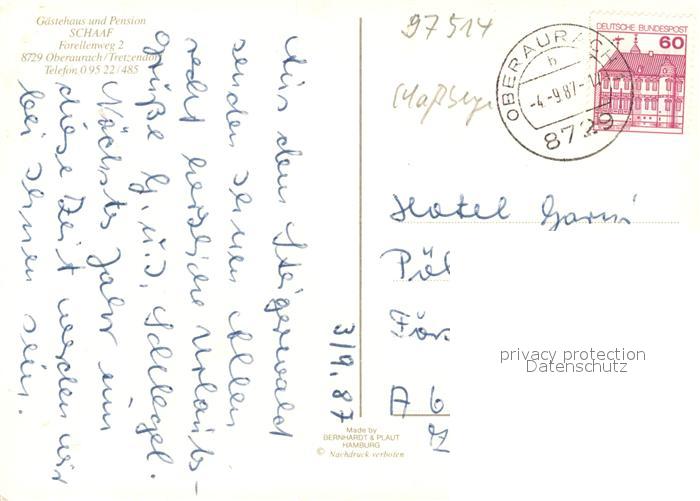 Gästehaus und Pension
SCHAAF
Forellenweg 2
8729 Oberaurach/Tretzendorf
Telefon 0 95 22/485
97514
OBERAURACH
b
-4.-9.87-1
8729
DEUTSCHE BUNDESPOST
60
Aus dem Steigerwald
senden Ihnen Allen
recht herzliche Urlaubs-
grüße G. u. J. Schlegel.
Nächstes Jahr um
diese Zeit werden wir
bei Ihnen sein.
3/9.87
Hotel Garni
Pöl
För
A 6
privacy protection
Datenschutz
Made by
BERNHARDT & PLAUT
HAMBURG
© Nachdruck verboten